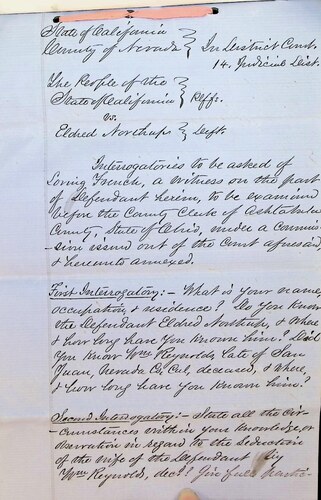 State of California
County of Nevada } In District Court
14. Judicial Dist.
The People of the
State of California } Plffs.
vs.
Eldred Northup } Deft.
Interrogatories to be asked of
Loring French, a witness on the part
of Defendant herein, to be examined
before the County Clerk of Ashtabula
County, State of Ohio, under a commis-
sion issued out of the Court aforesaid,
& hereunto annexed.
First Interrogatory:- What is your name,
occupation, & residence? Do you know
the Defendant Eldred Northup, & where
& how long have you known him? Did
you know Wm Reynolds, late of San
Juan, Nevada Co. Cal, deceased, & where,
& how long have you known him?
Second Interrogatory:- State all the cir-
cumstances within your knowledge, or
observation in regard to the seduction
of the wife of the Defendant by
Wm Reynolds, decd? Give full partic-